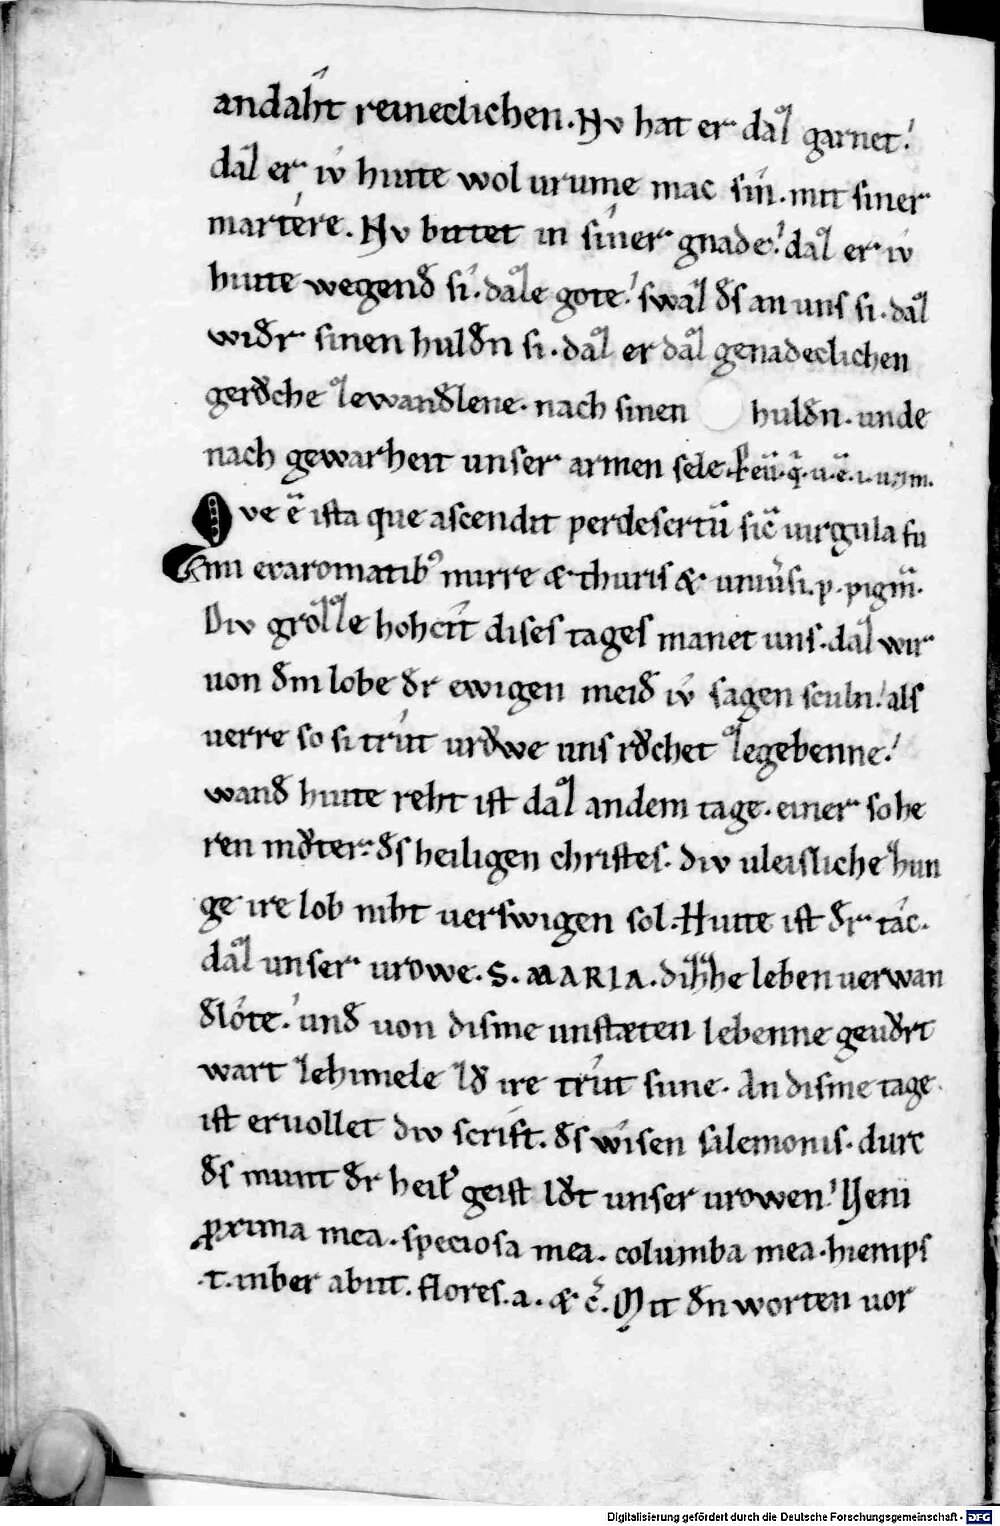 andaht reineclichen. Nv hat er daʒ garnet.
daʒ er iv hiute wol urume mac sin. mit siner
martere. Nv bittet in siner gnade. daʒ er iv
hiute wegend si. daʒʒe gote. swaʒ ds an uns si. daʒ
wider sinen huldn si. daʒ er daʒ genadeclichen
gerůche ʒewandlene. nach sinen huldn. unde
nach gewarheit unser armen sele.
Que ē ista que ascendit per desertū sic̄ uirgula fu
mi ex aromatib' mirre & thuris & uniu̇si. p. pigm̄.
Div groʒʒe hohcit dises tages manet uns. daʒ wir
uon dm lobe dr ewigen meid iv sagen sculn. als
uerre so si trut urowe uns růchet ʒegebenne.
wand hiute reht ist daʒ an dem tage. einer so he
ren můter. ds heiligen christes. div uleisliche ʒun
ge ire lob niht uerswigen sol. Hiute ist dr tac.
daʒ unser urowe. S. MARIA. diʒʒe leben uerwan
dlote. und uon disme unstæten lebenne geuůrt
wart ʒehimele ʒů ire trut sune. An disme tage
ist eruollet div scrift. ds wisen salemonis. durc
ds munt dr heil' geist ʒůt unser urowen. Ueni
ꝓxima mea. speciosa mea. columba mea. hiemps
.t. inber abiit. flores. a. & c̄. Mit dn worten uor